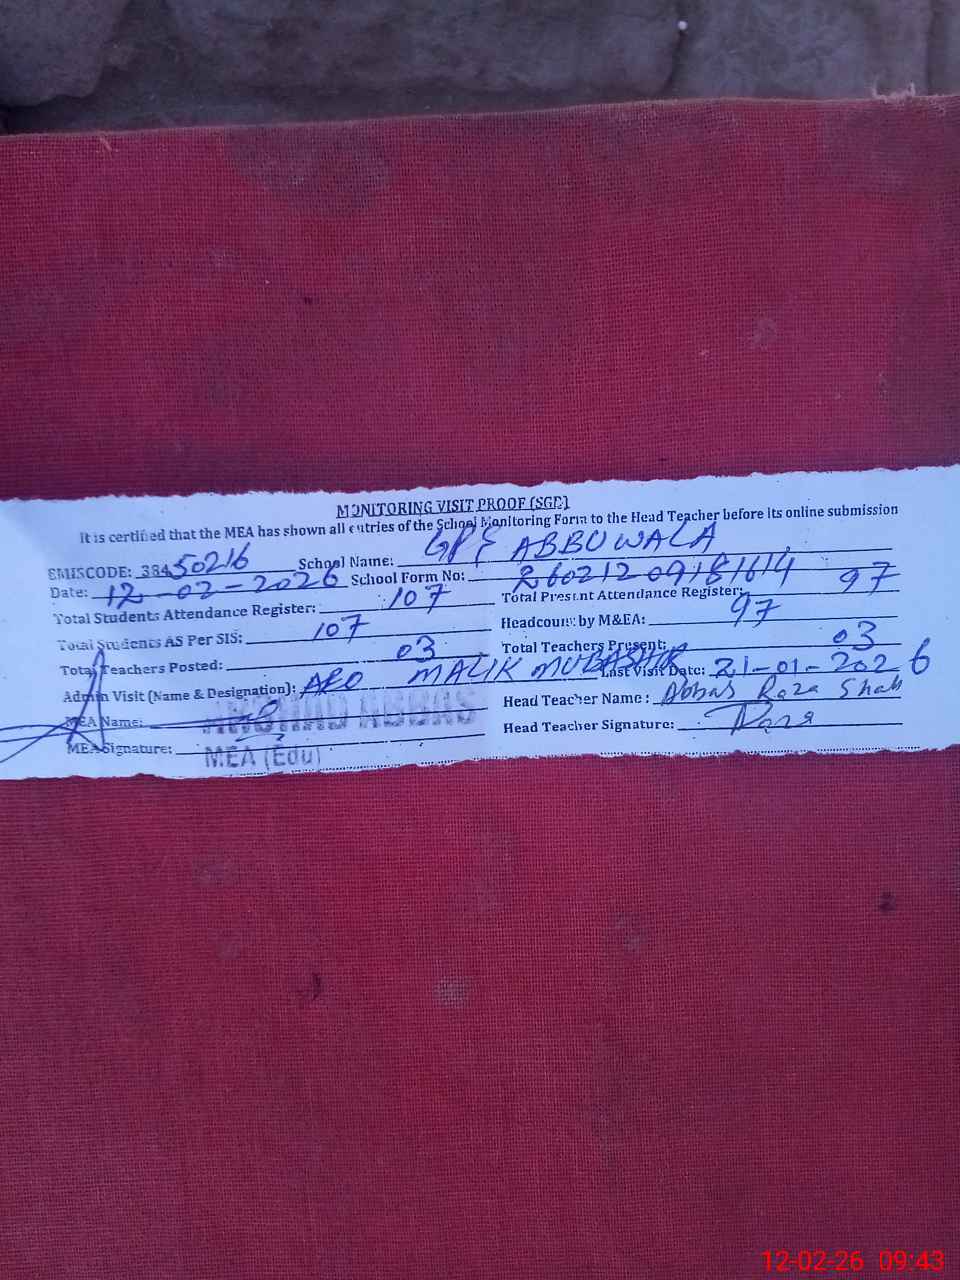 MONITORING VISIT PROOF (SGD)
It is certified that the MEA has shown all entries of the School Monitoring Form to the Head Teacher before its online submission
EMISCODE: 38450216 School Name: GPS ABBUWALA
Date: 12-02-2026 School Form No: 260212 09181614
Total Students Attendance Register: 107 Total Present Attendance Register: 97
Total Students AS Per SIS: 107 Headcount by M&EA: 97
Total Teachers Posted: 03 Total Teachers Present: 03
Admin Visit (Name & Designation): AEO MALIK MUBASHIR Last Visit Date: 21-01-2026
MEA Name: ABBAS Head Teacher Name: Abbas Raza Shah
MEA Signature: MEA (Edu) Head Teacher Signature: Raza
12-02-26 09:43